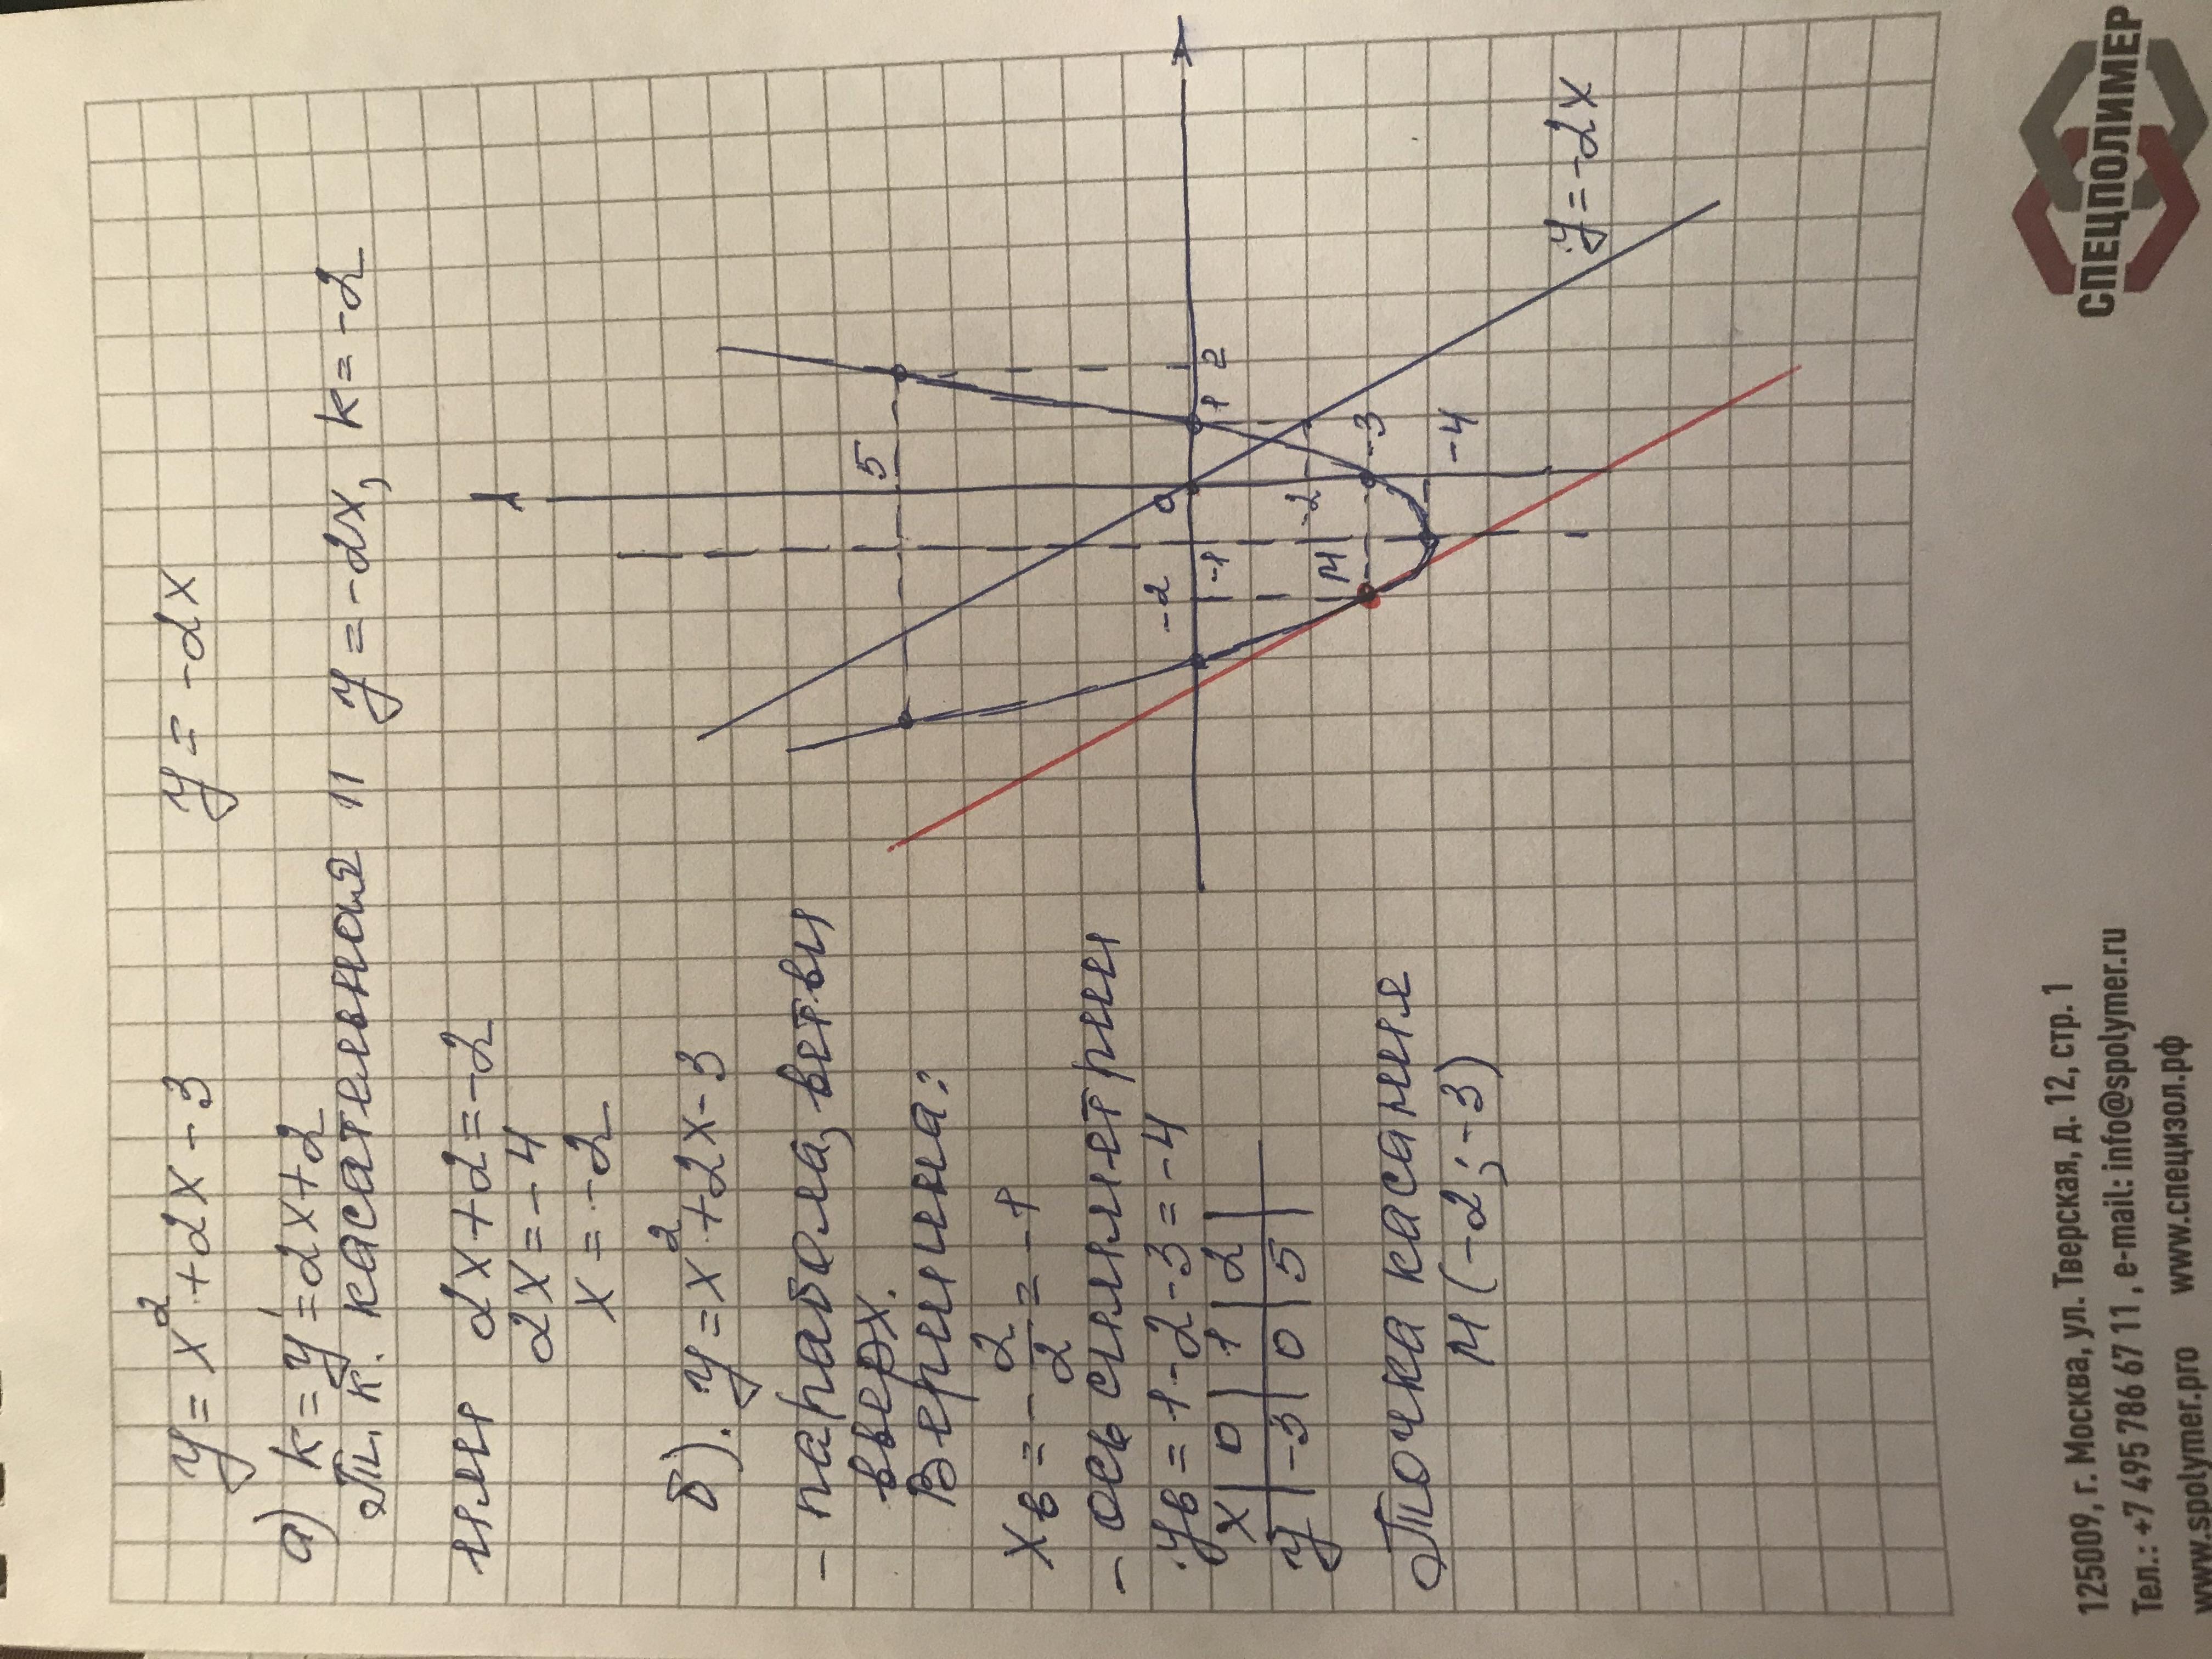 y = x² + 2x - 3    y = -2x
а) k = y' = 2x + 2
Т.к. касательная || y = -2x, k = -2
или 2x + 2 = -2
2x = -4
x = -2
б). y = x² + 2x - 3
- парабола, ветви
вверх.
Вершина:
xв = - 2/2 = -1
- ось симметрии
yв = 1 - 2 - 3 = -4
x | 0 | 1 | 2 |
y | -3 | 0 | 5 |
Точка касания
M (-2; -3)
5
0
-2
-1
1
2
M
-2
-3
-4
y = -2x
125009, г. Москва, ул. Тверская, д. 12, стр. 1
Тел.: +7 495 786 67 11, e-mail: info@spolymer.ru
www.spolymer.pro    www.специзол.рф
СПЕЦПОЛИМЕР